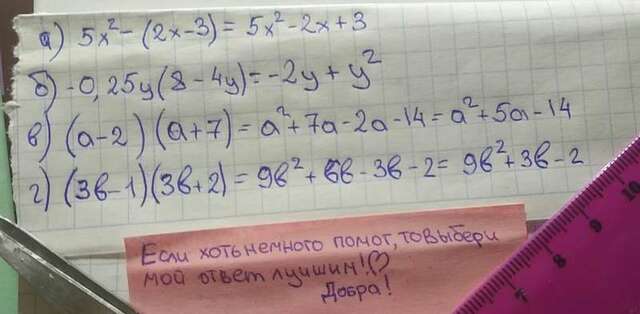 а) 5x²-(2x-3)=5x²-2x+3
б) -0,25y(8-4y)=-2y+y²
в) (a-2)(a+7)=a²+7a-2a-14=a²+5a-14
г) (3в-1)(3в+2)=9в²+6в-3в-2=9в²+3в-2
Если хоть немного помог, то выбери
мой ответ лучшим!♡
Добра!
7 8 9 10